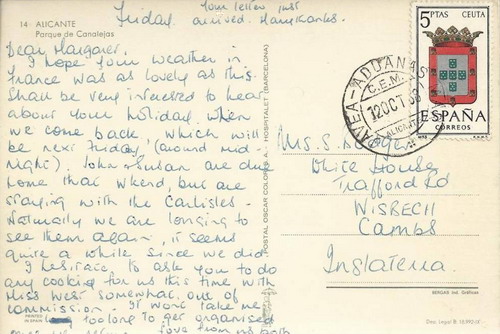 Your letter just
Friday. arrived. Many thanks.
14 ALICANTE
Parque de Canalejas
Dear Margaret,
I hope your weather in
France was as lovely as this.
Shall be very interested to hear
about your holiday when
we come back which will
be next Friday (around mid-
night). John & Susan are due
home that w'kend, but are
staying with the Carlisles.
Naturally we are longing to
see them again, it seems
quite a while since we did.
I hesitate to ask you to do
any cooking for us this time with
Miss West somewhat out of
commission. It won't take me
too long to get organised
love from us both
POSTAL OSCAR COLOR S.A. HOSPITALET (BARCELONA)
PRINTED
IN SPAIN
JAVEA - ADUANAS
C.E.M.
12 OCT
ALICANTE
5 PTAS CEUTA
ESPAÑA
CORREOS
Mrs. S.
White House
Trafford Rd
WISBECH
Cambs
Inglaterra
BERGAS Ind. Gráficas
Dep. Legal B.